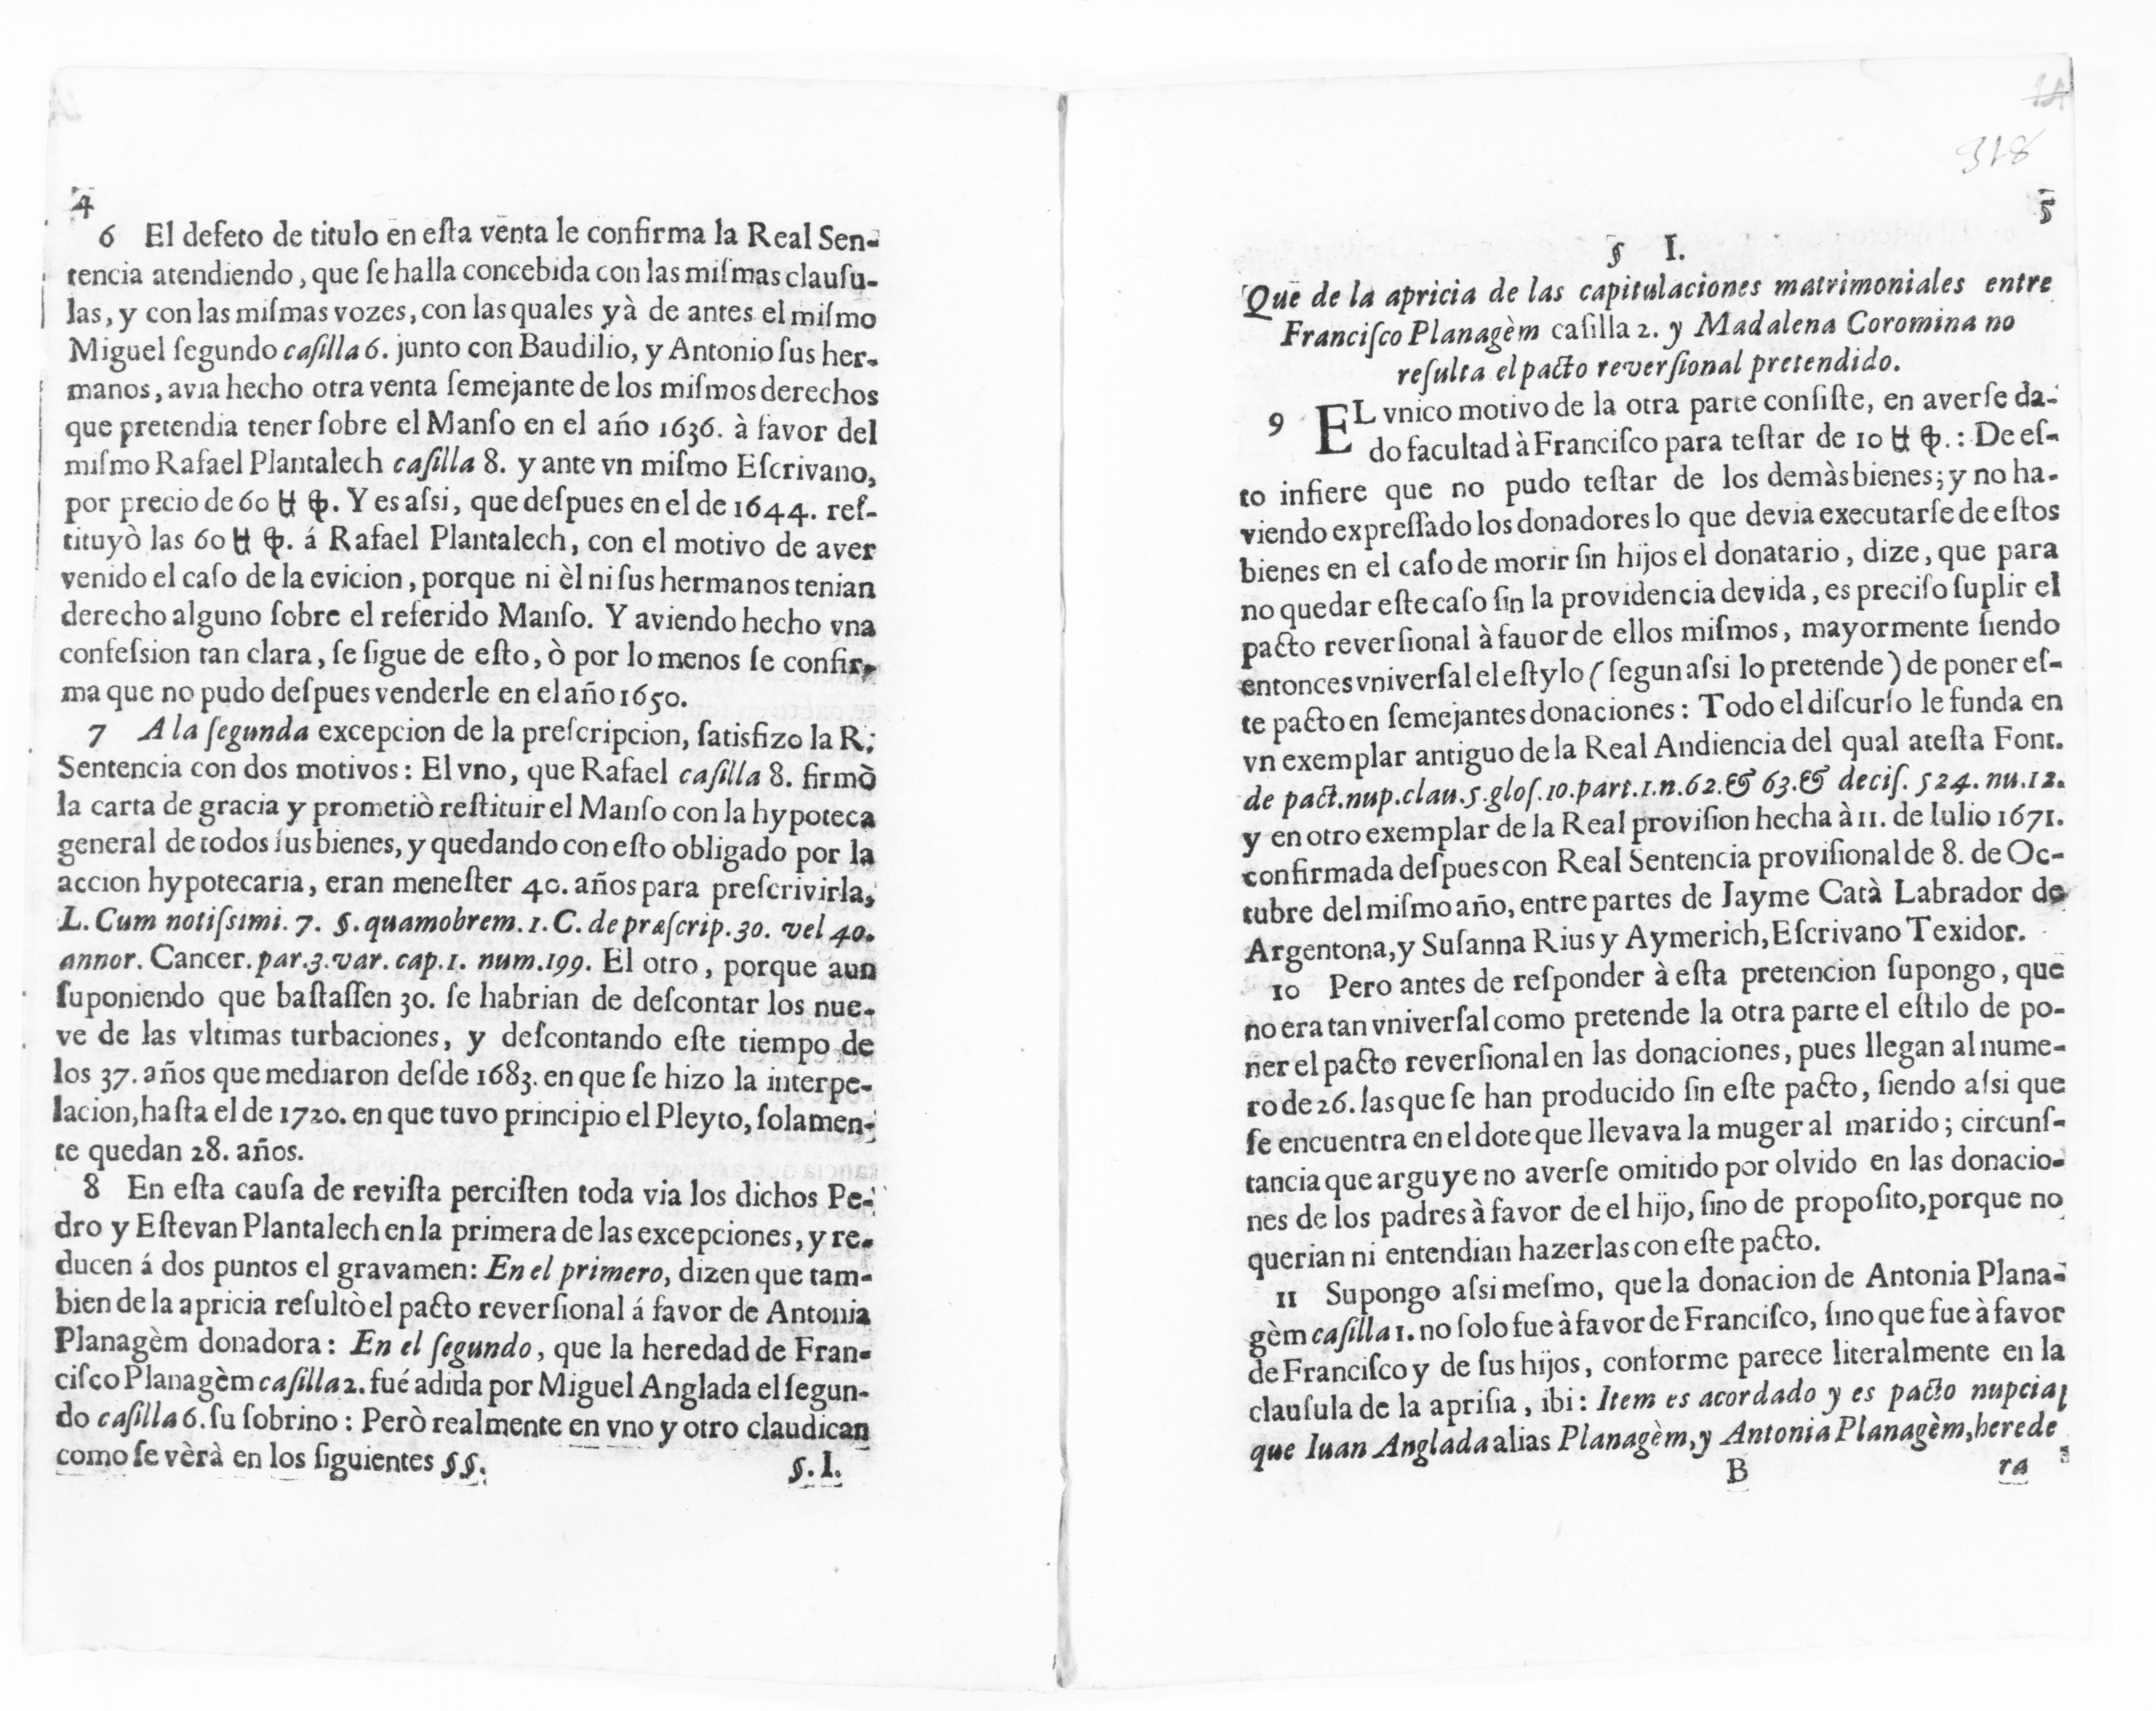 4
6 El defeto de titulo en eſta venta le confirma la Real Sen-
tencia atendiendo, que ſe halla concebida con las miſmas clauſu-
las, y con las miſmas vozes, con las quales yà de antes el miſmo
Miguel ſegundo caſilla 6. junto con Baudilio, y Antonio ſus her-
manos, avia hecho otra venta ſemejante de los miſmos derechos
que pretendia tener ſobre el Manſo en el año 1636. à favor del
miſmo Rafael Plantalech caſilla 8. y ante vn miſmo Eſcrivano,
por precio de 60 . Y es aſsi, que deſpues en el de 1644. reſ-
tituyò las 60 . á Rafael Plantalech, con el motivo de aver
venido el caſo de la evicion, porque ni èl ni ſus hermanos tenian
derecho alguno ſobre el referido Manſo. Y aviendo hecho vna
confeſsion tan clara, ſe ſigue de eſto, ò por lo menos ſe confir-
ma que no pudo deſpues venderle en el año 1650.
7 A la ſegunda excepcion de la preſcripcion, ſatisfizo la R.
Sentencia con dos motivos: El vno, que Rafael caſilla 8. firmò
la carta de gracia y prometiò reſtituir el Manſo con la hypoteca
general de todos ſus bienes, y quedando con eſto obligado por la
accion hypotecaria, eran meneſter 40. años para preſcrivirla,
L. Cum notiſsimi. 7. §. quamobrem. 1. C. de præſcrip. 30. vel 40.
annor. Cancer. par. 3. var. cap. 1. num. 199. El otro, porque aun
ſuponiendo que baſtaſſen 30. ſe habrian de deſcontar los nue-
ve de las vltimas turbaciones, y deſcontando eſte tiempo de
los 37. años que mediaron deſde 1683. en que ſe hizo la interpe-
lacion, haſta el de 1720. en que tuvo principio el Pleyto, ſolamen-
te quedan 28. años.
8 En eſta cauſa de reviſta perciſten toda via los dichos Pe-
dro y Eſtevan Plantalech en la primera de las excepciones, y re-
ducen á dos puntos el gravamen: En el primero, dizen que tam-
bien de la apricia reſultò el pacto reverſional á favor de Antonia
Planagèm donadora: En el ſegundo, que la heredad de Fran-
ciſco Planagèm caſilla 2. fué adida por Miguel Anglada el ſegun-
do caſilla 6. ſu ſobrino: Però realmente en vno y otro claudican
como ſe vèrà en los ſiguientes §§.
§. I.
318
5
§ I.
Que de la apricia de las capitulaciones matrimoniales entre
Franciſco Planagèm caſilla 2. y Madalena Coromina no
reſulta el pacto reverſional pretendido.
9 EL vnico motivo de la otra parte conſiſte, en averſe da-
do facultad à Franciſco para teſtar de 10 .: De eſ-
to infiere que no pudo teſtar de los demàs bienes; y no ha-
viendo expreſſado los donadores lo que devia executarſe de eſtos
bienes en el caſo de morir ſin hijos el donatario, dize, que para
no quedar eſte caſo ſin la providencia devida, es preciſo ſuplir el
pacto reverſional à fauor de ellos miſmos, mayormente ſiendo
entonces vniverſal el eſtylo (ſegun aſsi lo pretende) de poner eſ-
te pacto en ſemejantes donaciones: Todo el diſcurſo le funda en
vn exemplar antiguo de la Real Andiencia del qual ateſta Font.
de pact. nup. clau. 5. gloſ. 10. part. 1. n. 62. & 63. & deciſ. 524. nu. 12.
y en otro exemplar de la Real proviſion hecha à 11. de Iulio 1671.
confirmada deſpues con Real Sentencia proviſional de 8. de Oc-
tubre del miſmo año, entre partes de Jayme Catà Labrador de
Argentona, y Suſanna Rius y Aymerich, Eſcrivano Texidor.
10 Pero antes de reſponder à eſta pretencion ſupongo, que
no era tan vniverſal como pretende la otra parte el eſtilo de po-
ner el pacto reverſional en las donaciones, pues llegan al nume-
ro de 26. las que ſe han producido ſin eſte pacto, ſiendo aſsi que
ſe encuentra en el dote que llevava la muger al marido; circunſ-
tancia que arguye no averſe omitido por olvido en las donacio-
nes de los padres à favor de el hijo, ſino de propoſito, porque no
querian ni entendian hazerlas con eſte pacto.
11 Supongo aſsi meſmo, que la donacion de Antonia Plana-
gèm caſilla 1. no ſolo fue à favor de Franciſco, ſino que fue à favor
de Franciſco y de ſus hijos, conforme parece literalmente en la
clauſula de la apriſia, ibi: Item es acordado y es pacto nupcial
que Iuan Anglada alias Planagèm, y Antonia Planagèm, herede
B
ra